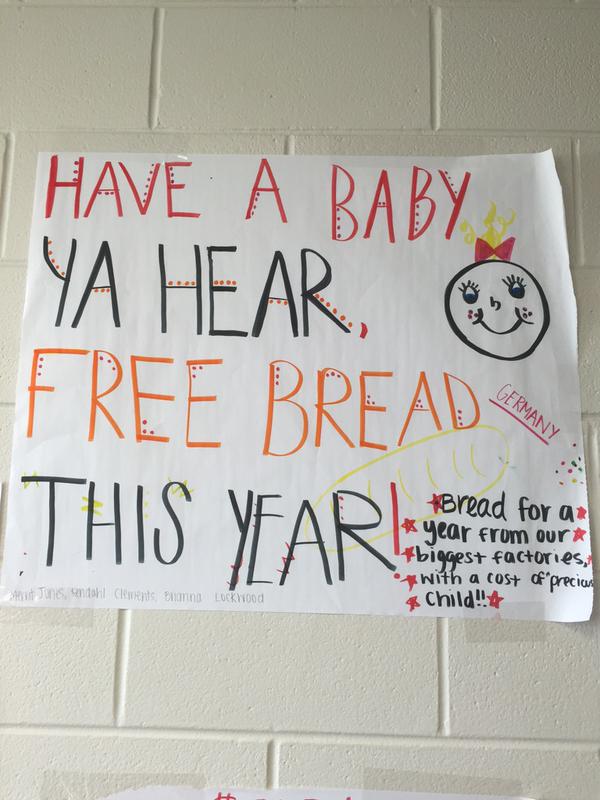 HAVE A BABY
YA HEAR,
FREE BREAD
GERMANY
THIS YEAR!
Bread for a
year from our
biggest factories,
with a cost of "precious
child!!
Junis, Kendahl Clements, Brianna Lockwood